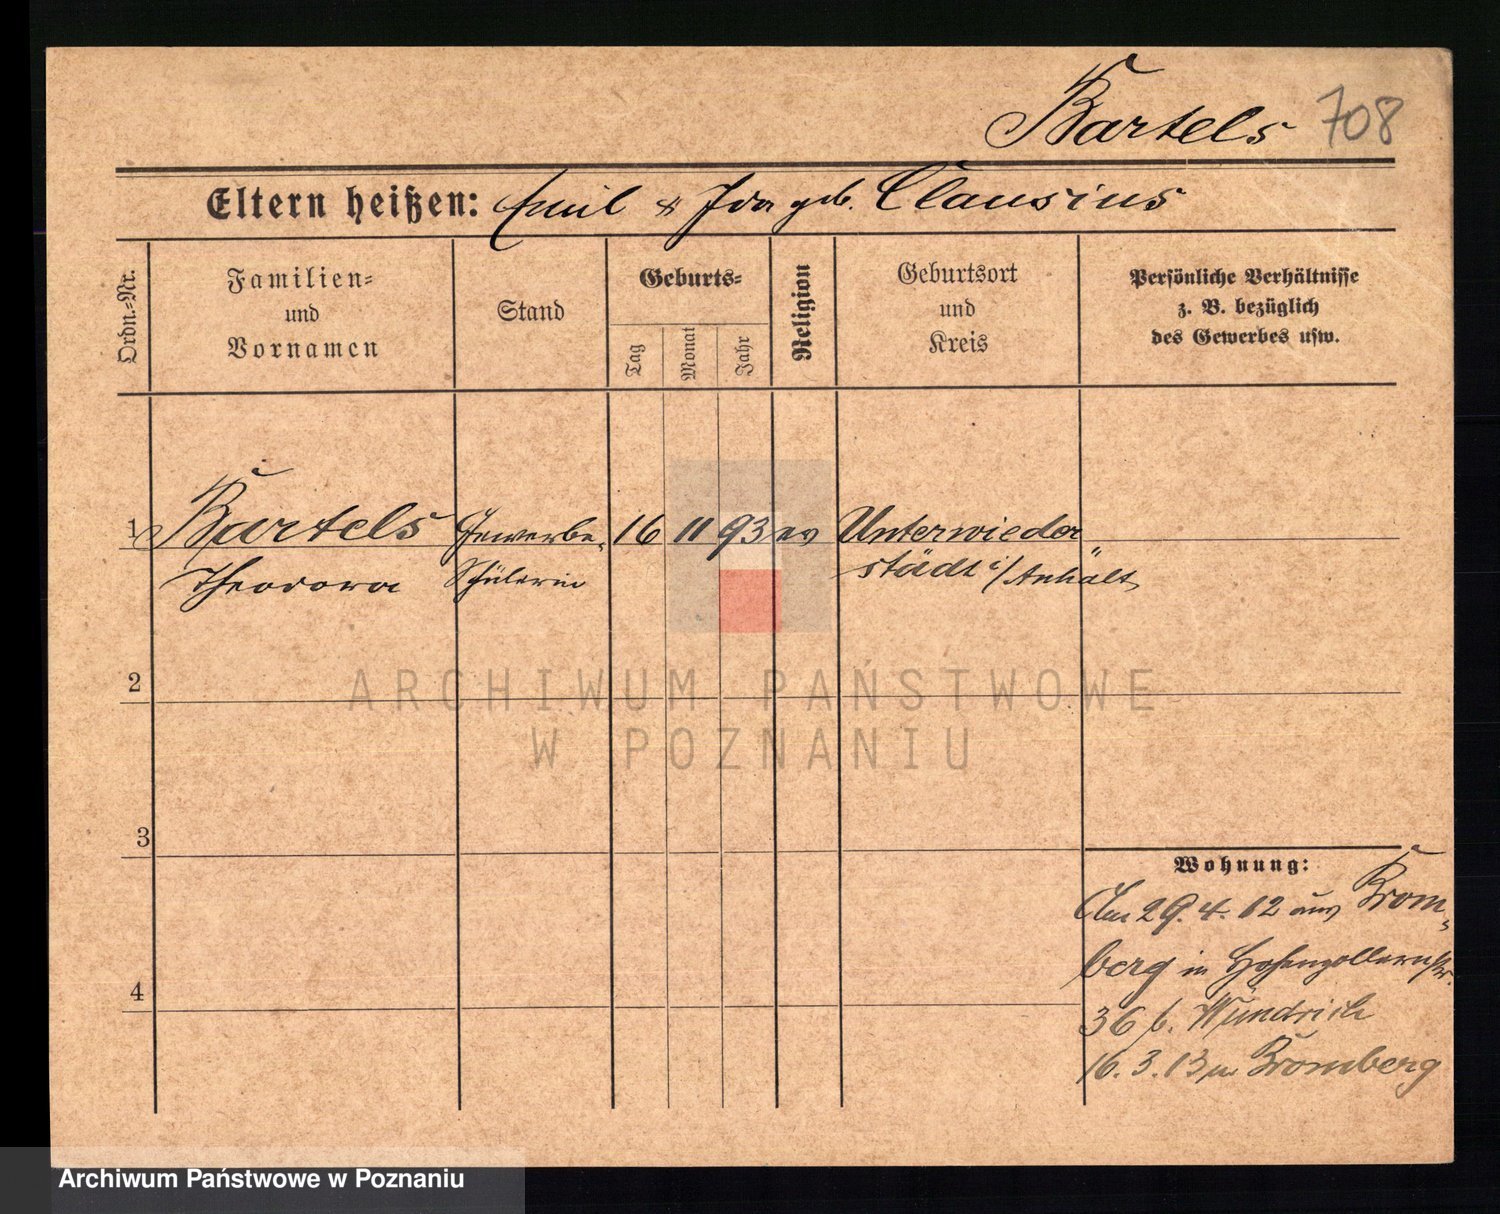 Bartels 708
Eltern heißen: Emil & Ida geb. Clausius
Ordn.-Nr.
Familien-
und
Vornamen
Stand
Geburts-
Tag
Monat
Jahr
Religion
Geburtsort
und
Kreis
Persönliche Verhältnisse
z. B. bezüglich
des Gewerbes usw.
1 Bartels Gewerbe- 16 11 93 ev Unterwieder
Theodora Schülerin städt i/Anhalt
2
ARCHIWUM PAŃSTWOWE
W POZNANIU
3
Wohnung:
Am 29.4.12 aus Brom-
berg in Hohenzollernstr.
4
36 b. Wündrich
16.3.13 n. Bromberg
Archiwum Państwowe w Poznaniu